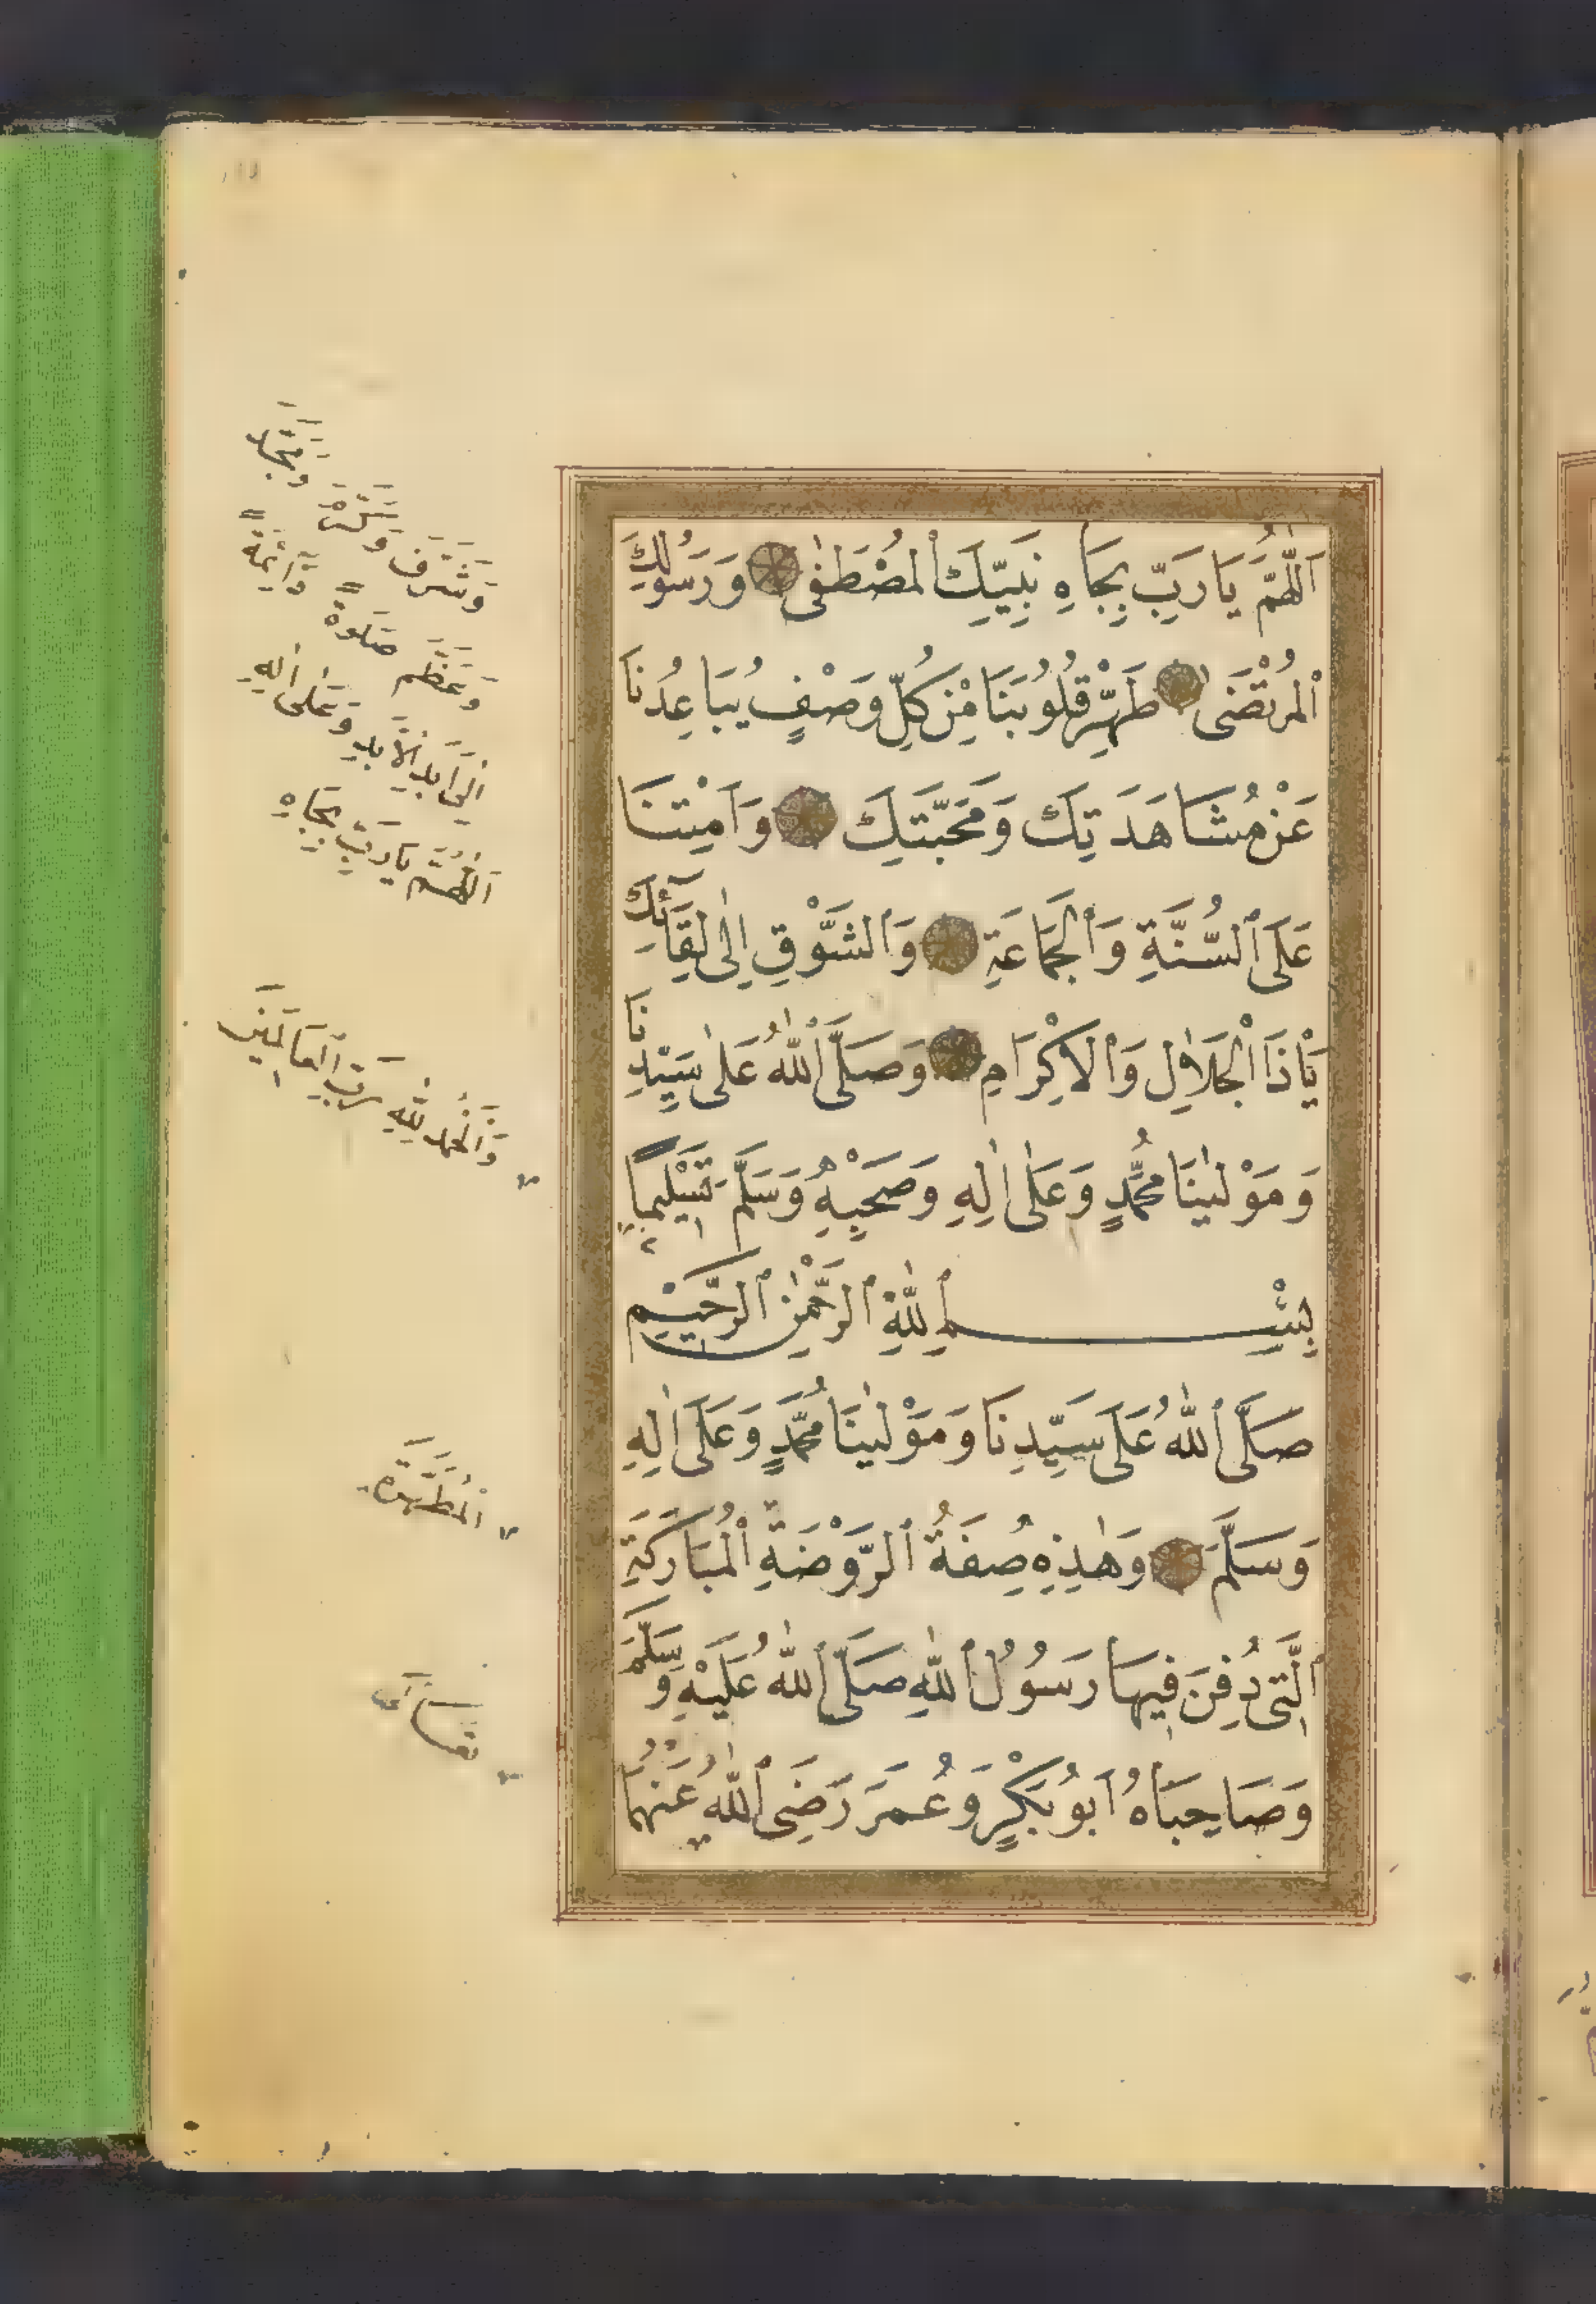 اَللّٰهُمَّ يَا رَبِّ بِجَاهِ نَبِيِّكَ الْمُصْطَفٰى وَرَسُولِكَ
الْمُرْتَضٰى طَهِّرْ قُلُوبَنَا مِنْ كُلِّ وَصْفٍ يُبَاعِدُنَا
عَنْ مُشَاهَدَتِكَ وَمَحَبَّتِكَ وَاَمِتْنَا
عَلَى السُّنَّةِ وَالْجَمَاعَةِ وَالشَّوْقِ اِلٰى لِقَآئِكَ
يَا ذَا الْجَلَالِ وَالْاِكْرَامِ وَصَلَّى اللّٰهُ عَلٰى سَيِّدِنَا
وَمَوْلٰينَا مُحَمَّدٍ وَعَلٰى اٰلِهِ وَصَحْبِهِ وَسَلَّمَ تَسْلِيمًا
بِسْمِ اللّٰهِ الرَّحْمٰنِ الرَّحِيْمِ
صَلَّى اللّٰهُ عَلَى سَيِّدِنَا وَمَوْلٰينَا مُحَمَّدٍ وَعَلٰى اٰلِهِ
وَسَلَّمَ وَهٰذِهِ صِفَةُ الرَّوْضَةِ الْمُبَارَكَةِ
الَّتِى دُفِنَ فِيهَا رَسُولُ اللّٰهِ صَلَّى اللّٰهُ عَلَيْهِ وَسَلَّمَ
وَصَاحِبَاهُ اَبُو بَكْرٍ وَعُمَرَ رَضِىَ اللّٰهُ عَنْهُمَا
وَشَرَّفَ وَكَرَّمَ
وَعَظَّمَ صَلٰوةً دَائِمَةً
اِلٰى اَبَدِ الْاَبَدِ وَعَلٰى اٰلِهِ
اَللّٰهُمَّ يَا رَبِّ بِجَاهِ
وَالْحَمْدُ لِلّٰهِ رَبِّ الْعَالَمِينَ
الْمُطَهَّرَةِ